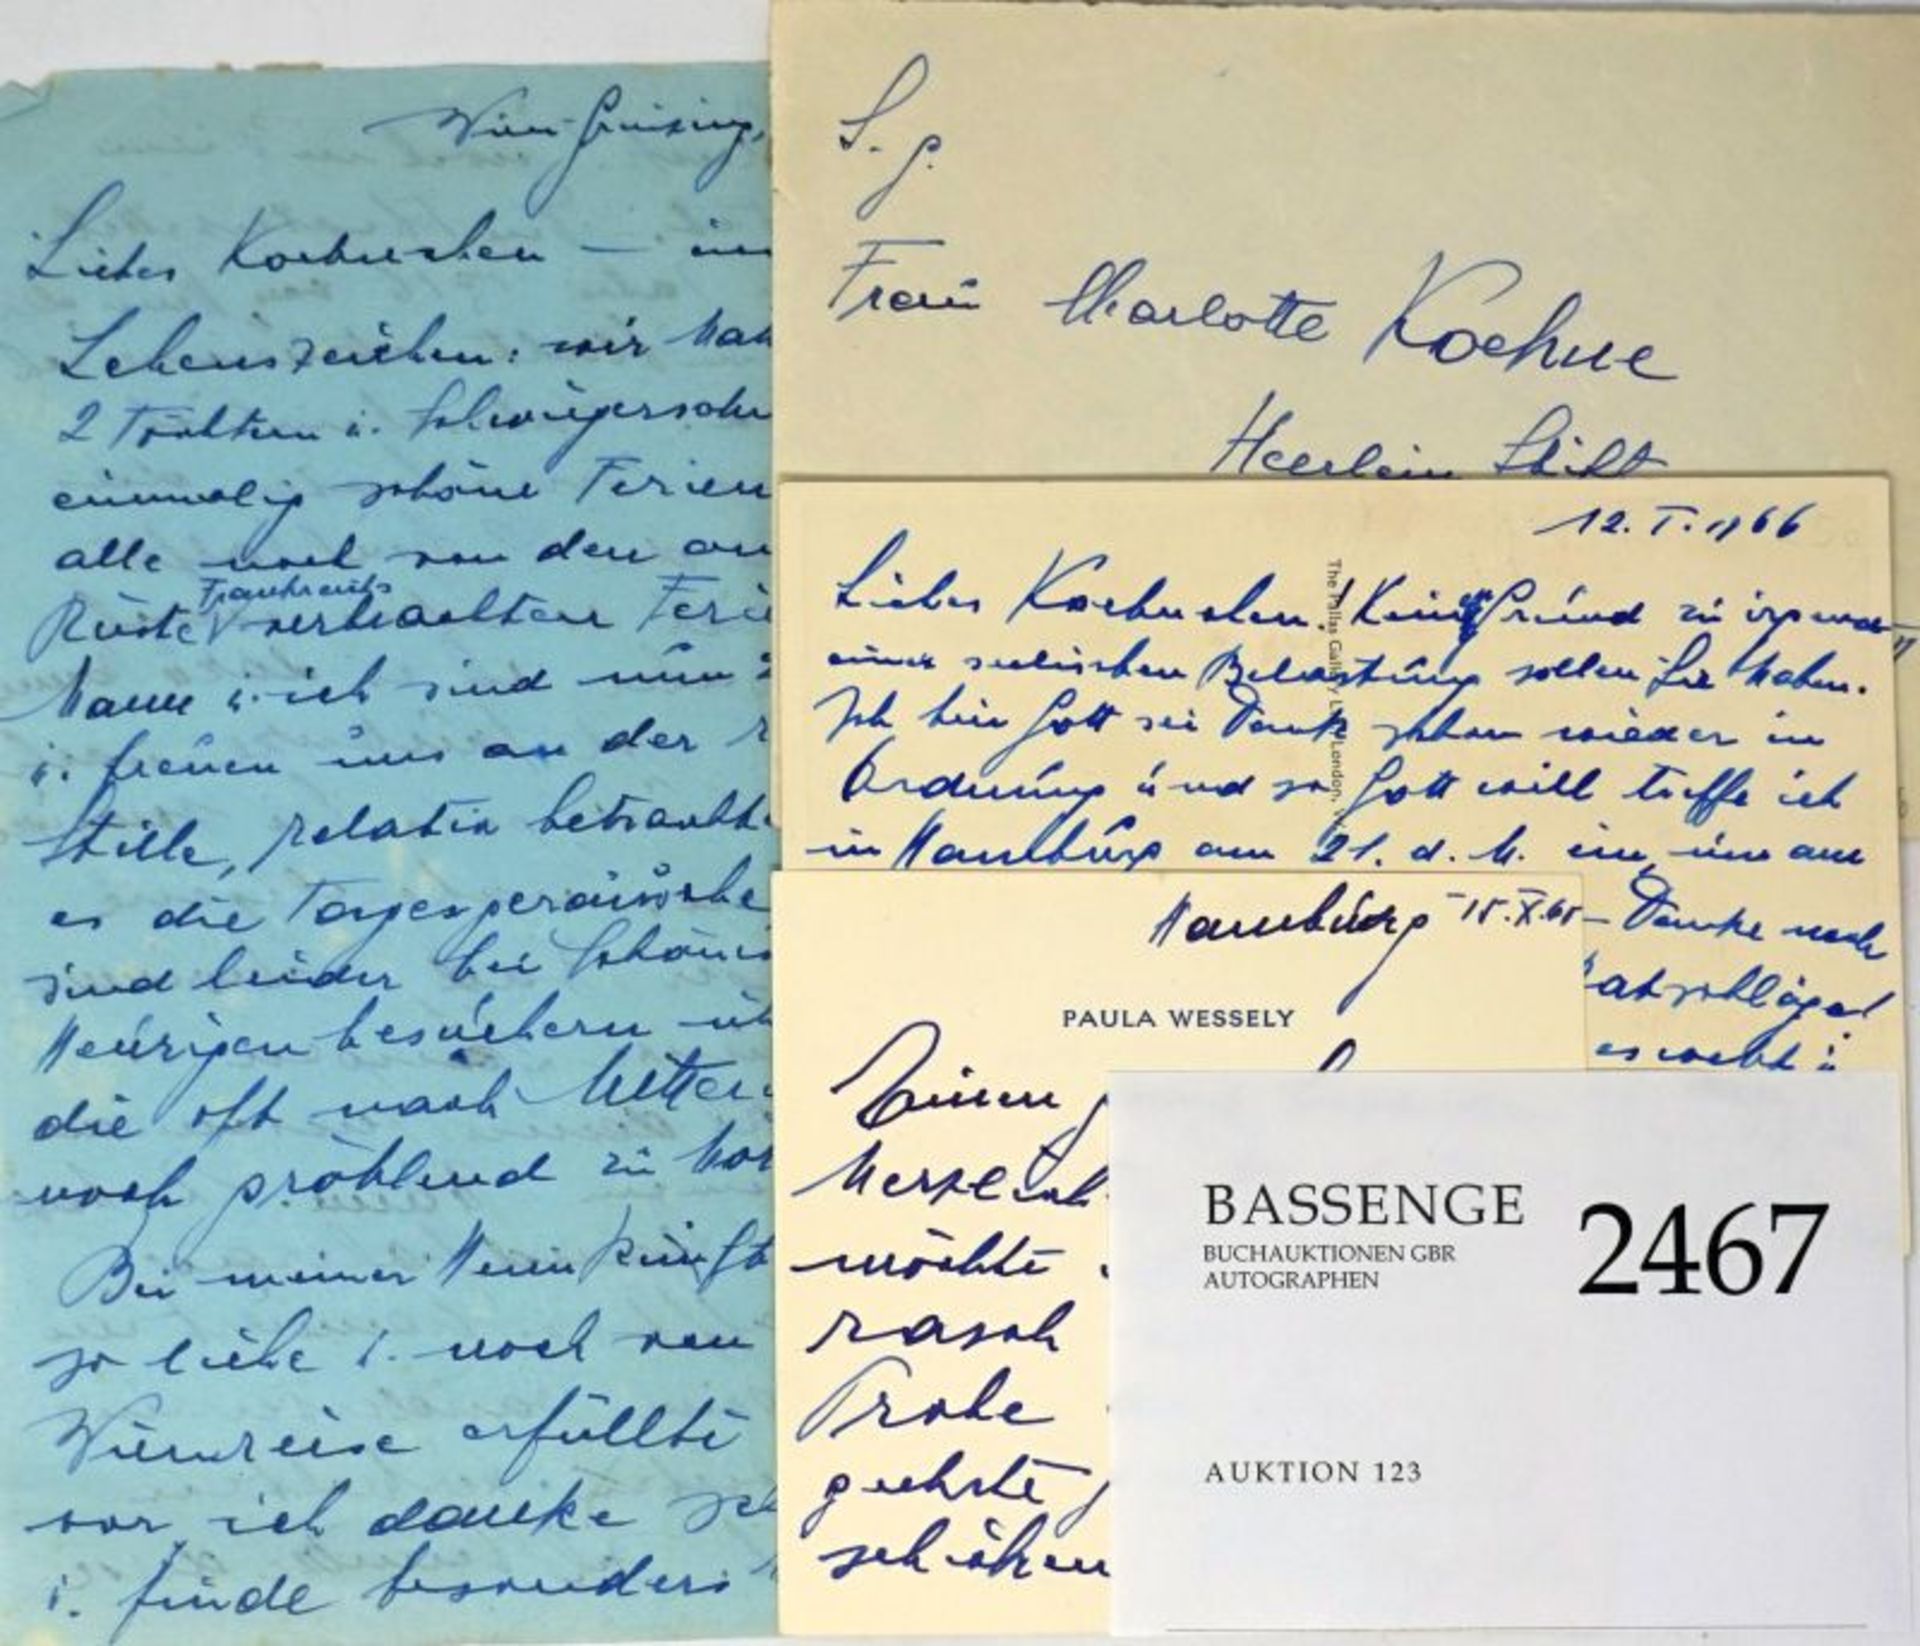 Wien-Grinzing,
Liebes Koehnchen –
Lebenszeichen: wir hab
2 Töchtern u. Schwiegersohn
einmalig schöne Ferien
alle noch von den an
Frankreichs
Küste verbrachten Ferie
Mann u. ich sind nun
u. freuen uns an der
Stille, relativ betrachtet
es die Tagesgeräusche
sind leider bei Schöne
Heurigenbesuchern
die oft nach Mitter
noch gröhlend zu hör
Bei meiner Heimkunft
so liebe u. noch von
Wienreise erfüllte
vor, ich danke
u. finde besonders
S. g.
Frau Charlotte Koehne
Heerlein Stift
12. I. 1966
Liebes Koehnchen! Keinen Grund zu irgend
einer seelischen Belastung sollen Sie haben.
Ich bin Gott sei Dank schon wieder in
Ordnung und so Gott will treffe ich
in Hamburg am 21. d. M. ein, um am
Danke noch
atschläge!
es
The Pallas Gallery London.
Hamburg 15.X.65
PAULA WESSELY
Einen
Herzlich
möchte
rasch
Probe
geehrte
schönen
BASSENGE
BUCHAUKTIONEN GBR
AUTOGRAPHEN
2467
AUKTION 123